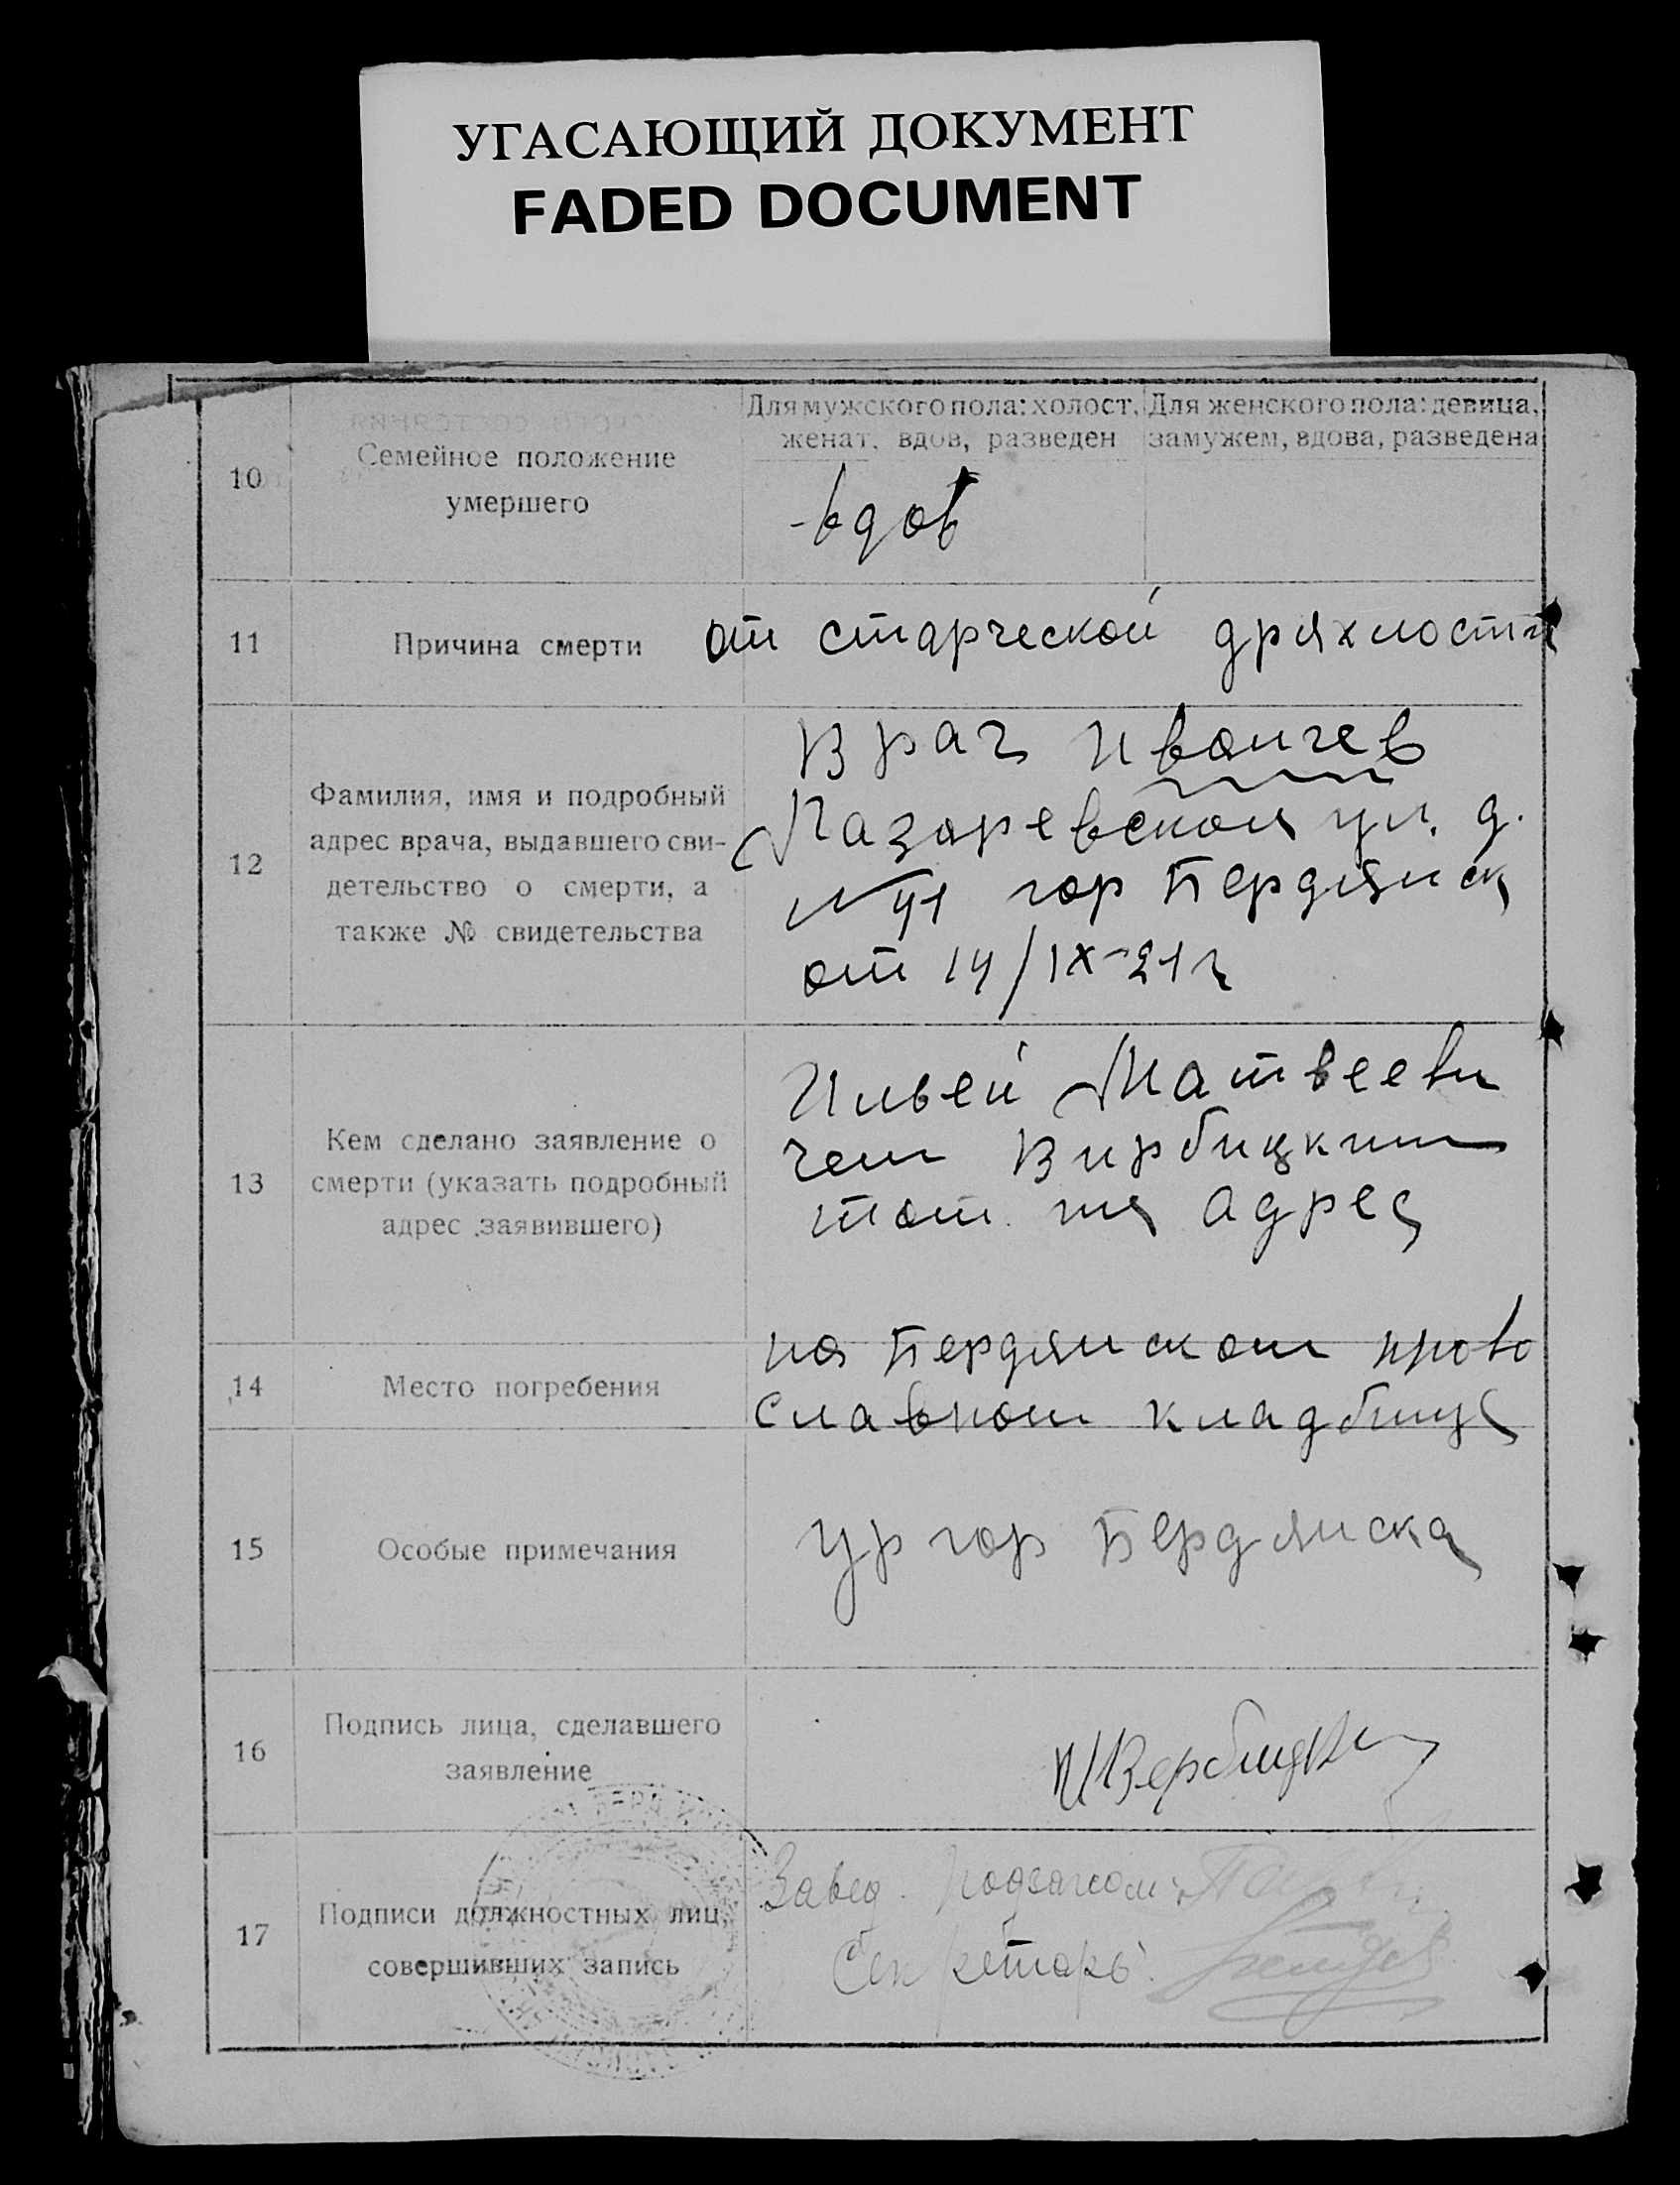 УГАСАЮЩИЙ ДОКУМЕНТ
FADED DOCUMENT
10
Семейное положение
умершего
Для мужского пола: холост,
женат, вдов, разведен
Для женского пола: девица,
замужем, вдова, разведена
вдов
11
Причина смерти
от старческой дряхлости
12
Фамилия, имя и подробный
адрес врача, выдавшего сви-
детельство о смерти, а
также № свидетельства
Врач
Лазаревской ул. д.
№ 41 гор Бердянск
от 14/IX-21 г
13
Кем сделано заявление о
смерти (указать подробный
адрес заявившего)
Ильей Матвееви
чем Вирбицким
тот же адрес
14
Место погребения
на Бердянском право
славном кладбище
15
Особые примечания
Ур гор Бердянска
16
Подпись лица, сделавшего
заявление
И Вербицкий
17
Подписи должностных лиц,
совершивших запись
Завед. Подзагсом
Секретарь